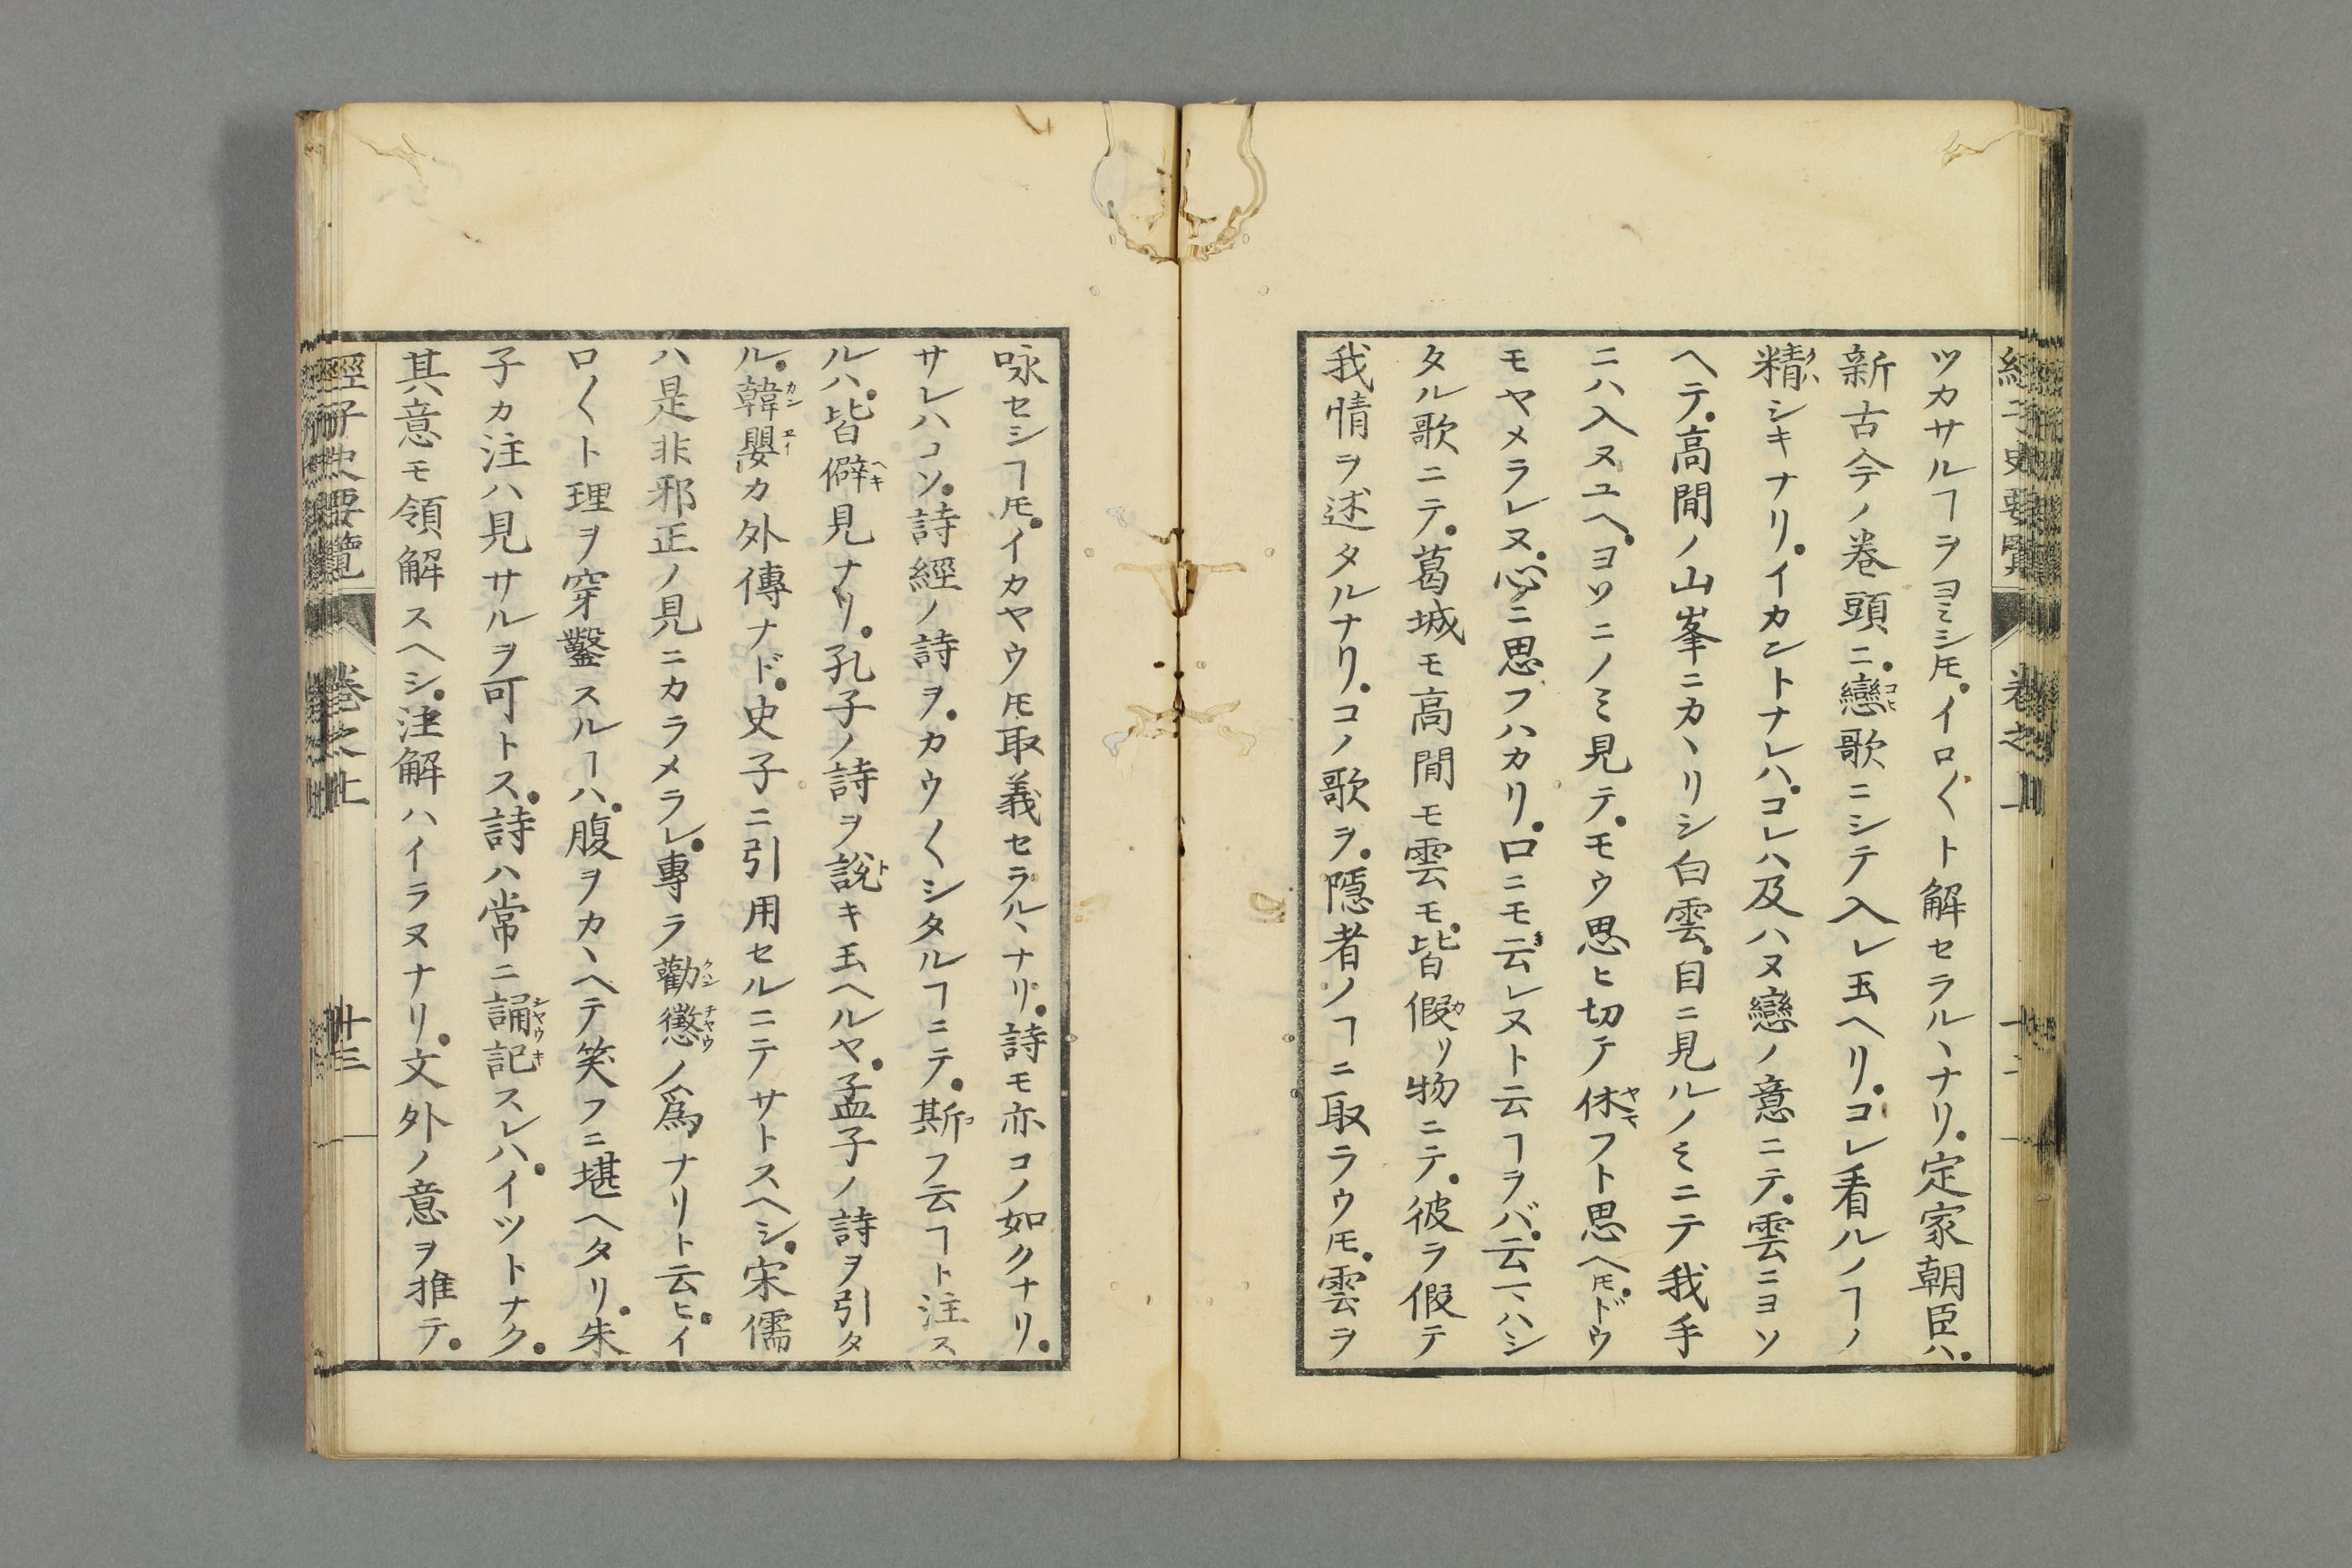 ツカサルヿヲヨミシ𪜈。イロ〱ト解セラルヽナリ。定家朝臣ハ。
新古今ノ卷頭ニ。戀歌ニシテ入レ玉ヘリ。コレ看ルノヿノ
精シキナリ。イカントナレハ。コレハ及ハヌ戀ノ意ニテ。雲ニヨソ
ヘテ。高間ノ山峯ニカヽリシ白雲。目ニ見ルノミニテ我手
ニハ入ヌユヘ。ヨソニノミ見テ。モウ思ヒ切テ休フト思ヘ𪜈。ドウ
モヤメラレヌ。心ニ思フハカリ。口ニモ云レヌト云ヿヲバ。云ハシ
タル歌ニテ。葛城モ高間モ雲モ。皆假リ物ニテ。彼ヲ假テ
我情ヲ述タルナリ。コノ歌ヲ。隱者ノヿニ取ラウ𪜈。雲ヲ
咏セシヿ𪜈。イカヤウ𪜈取義セラルヽナリ。詩モ亦コノ如クナリ。
サレハコソ。詩經ノ詩ヲ。カウ〱シタルヿニテ。斯フ云ヿト注ス
ルハ。皆僻見ナリ。孔子ノ詩ヲ說キ玉ヘルヤ。孟子ノ詩ヲ引タ
ル。韓嬰カ外傳ナド。史子ニ引用セルニテサトスヘシ。宋儒
ハ是非邪正ノ見ニカラメラレ。專ラ勸懲ノ爲ナリト云ヒ。イ
ロ〱ト理ヲ穿鑿スルヿハ。腹ヲカヽヘテ笑フニ堪ヘタリ。朱
子カ注ハ見サルヲ可トス。詩ハ常ニ誦記スレハ。イツトナク。
其意モ領解スヘシ。注解ハイラヌナリ。文外ノ意ヲ推テ。
經子史要覽 卷之上 十三